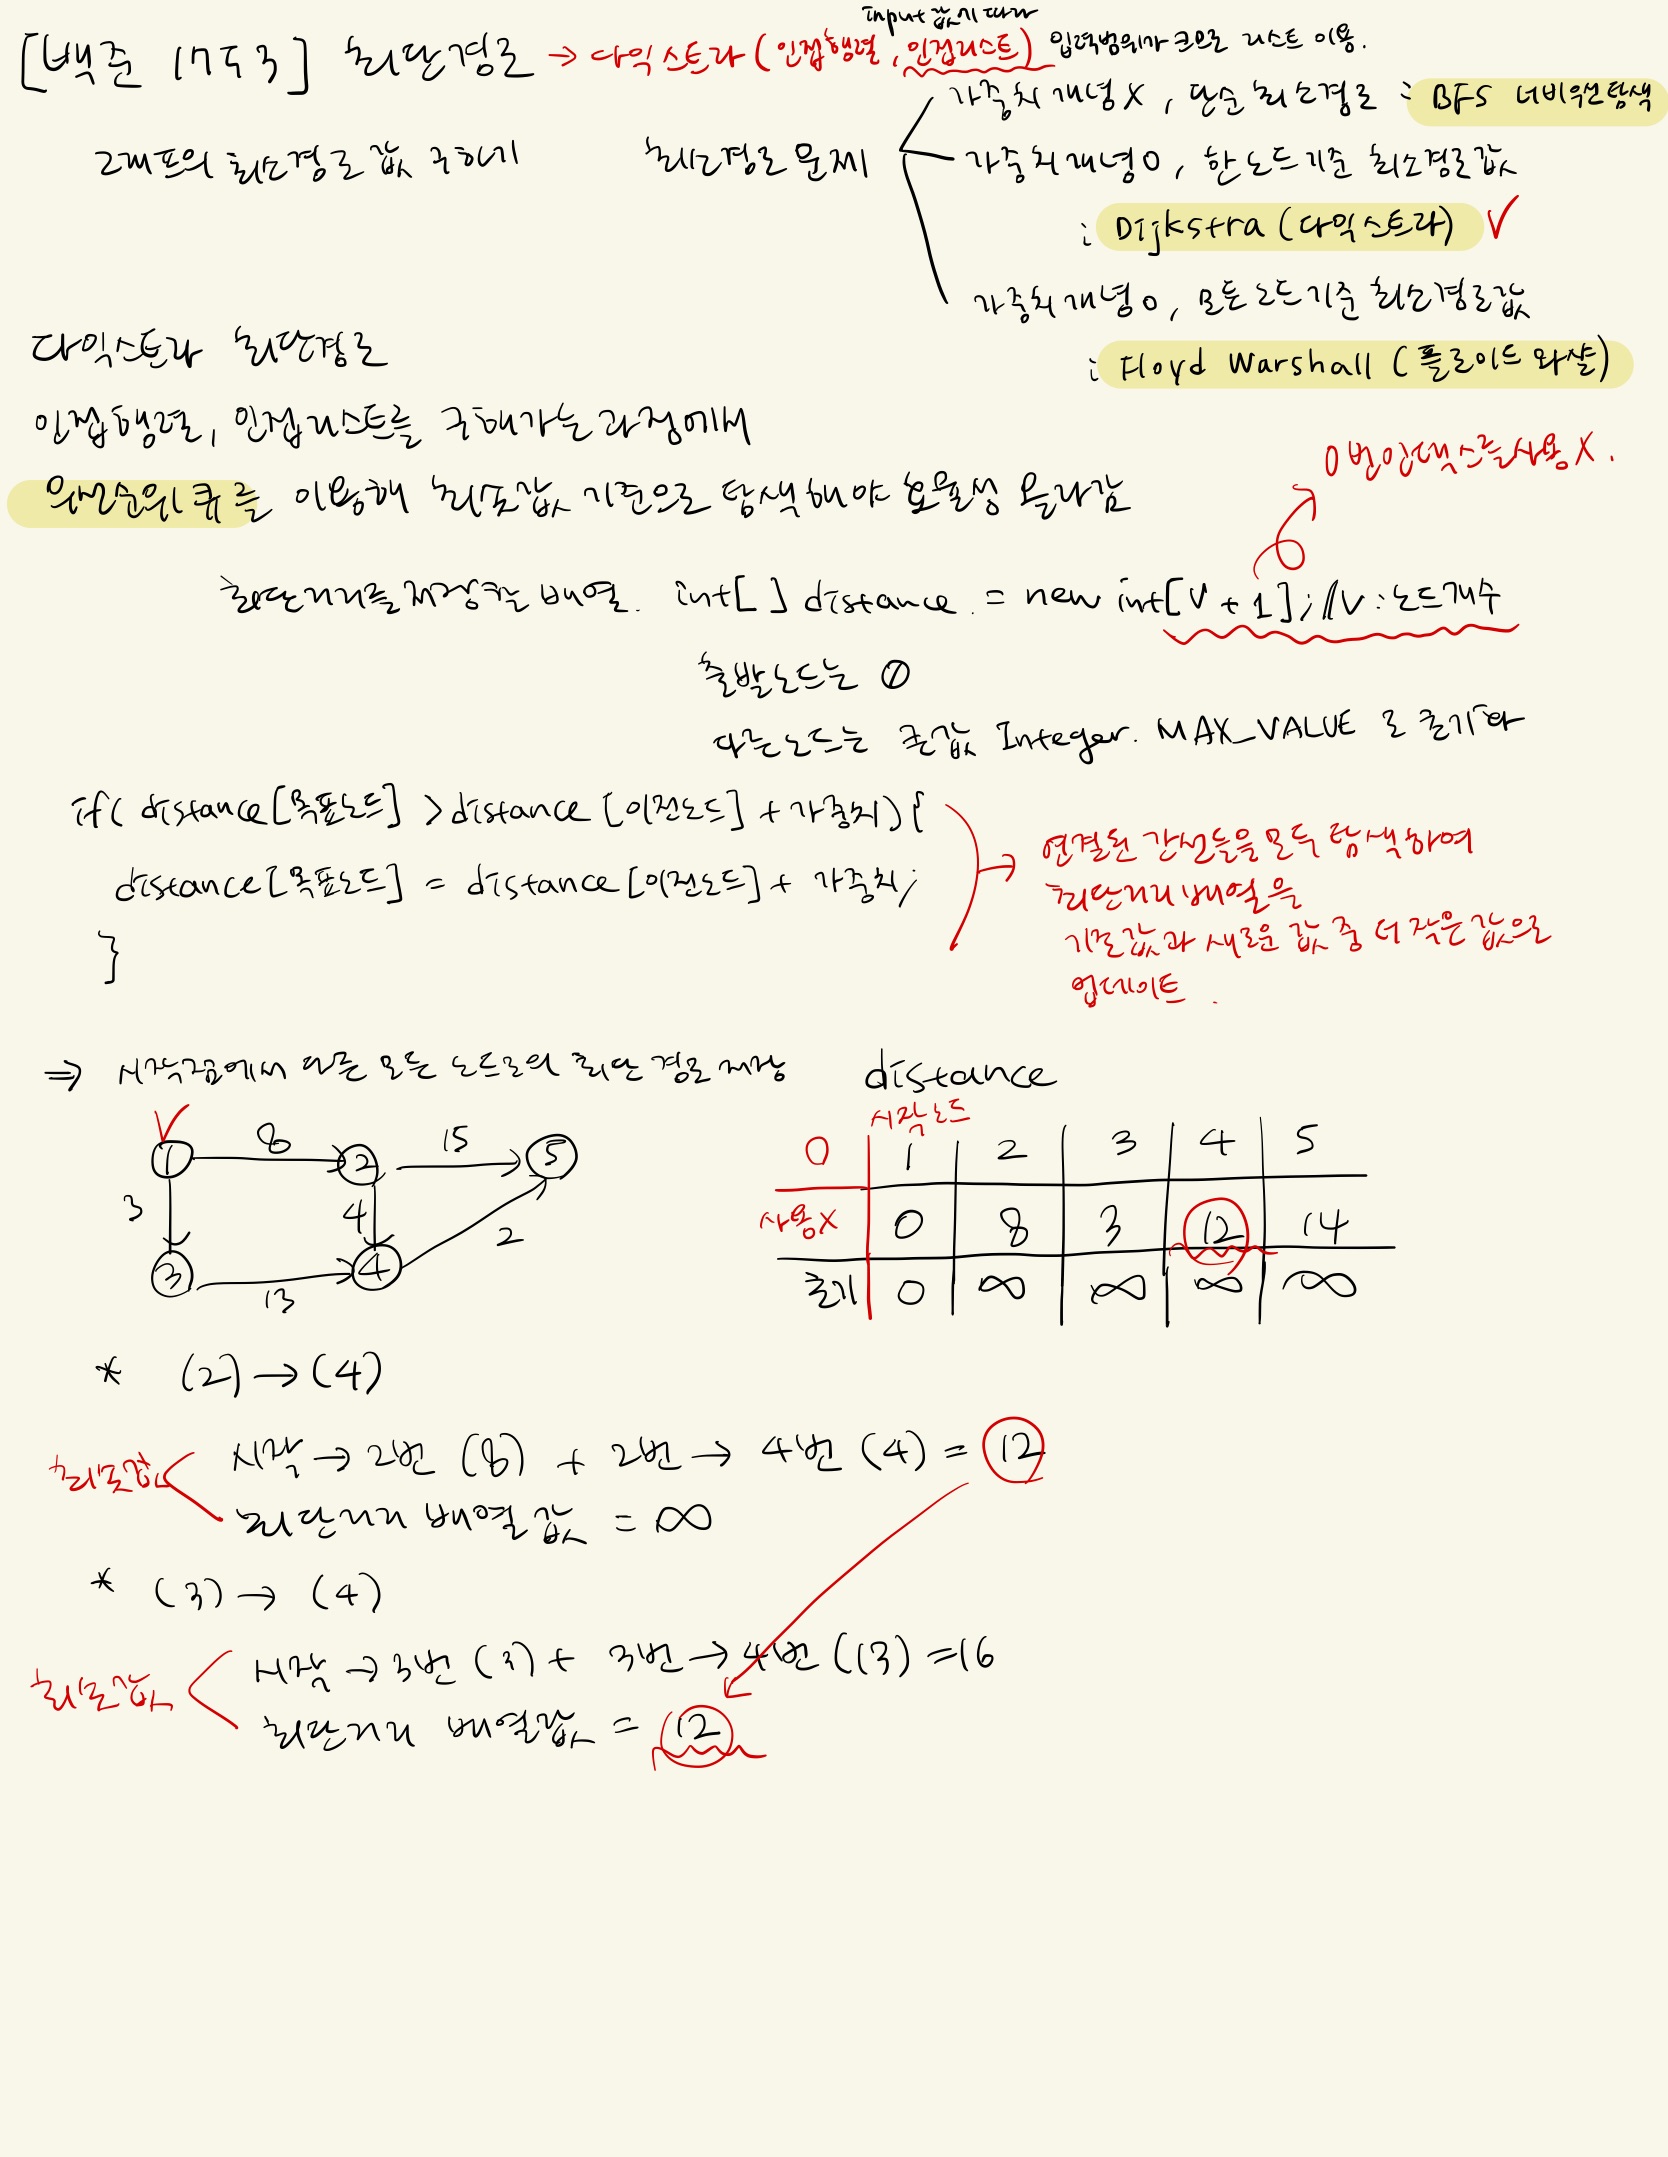 [백준 1753] 최단경로 → 다익스트라 (인접행렬, 인접리스트) 입력범위가 크므로 리스트 이용.
input 값에 따라
그래프의 최소경로 값 구하기
최소경로 문제
가중치 개념 X, 단순 최소경로 : BFS 너비우선탐색
가중치 개념 O, 한 노드 기준 최소경로값
: Dijkstra (다익스트라) ✓
가중치 개념 O, 모든 노드 기준 최소경로값
: Floyd Warshall (플로이드 와샬)
다익스트라 최단경로
인접행렬, 인접리스트를 구해가는 과정에서
우선순위 큐를 이용해 최소값 기준으로 탐색해야 효율성 올라감
0번 인덱스를 사용 X.
최단거리를 저장할 배열. int[ ] distance = new int[V + 1]; // V : 노드개수
출발노드는 0
다른노드는 큰값 Integer. MAX_VALUE 로 초기화
if( distance[목표노드] > distance [이전노드] + 가중치) {
distance[목표노드] = distance[이전노드] + 가중치;
}
연결된 간선들을 모두 탐색하여
최단거리 배열을
기존값과 새로운 값 중 더 작은 값으로
업데이트.
⇒ 시작점에서 다른 모든 노드로의 최단 경로 저장
1 8 2 15 5
3 4 2
3 13 4
distance
시작노드
0 1 2 3 4 5
사용X 0 8 3 12 14
초기 0 ∞ ∞ ∞ ∞
* (2) → (4)
최소값
시작 → 2번 (8) + 2번 → 4번 (4) = 12
최단거리 배열 값 = ∞
* (3) → (4)
최소값
시작 → 3번 (3) + 3번 → 4번 (13) = 16
최단거리 배열값 = 12